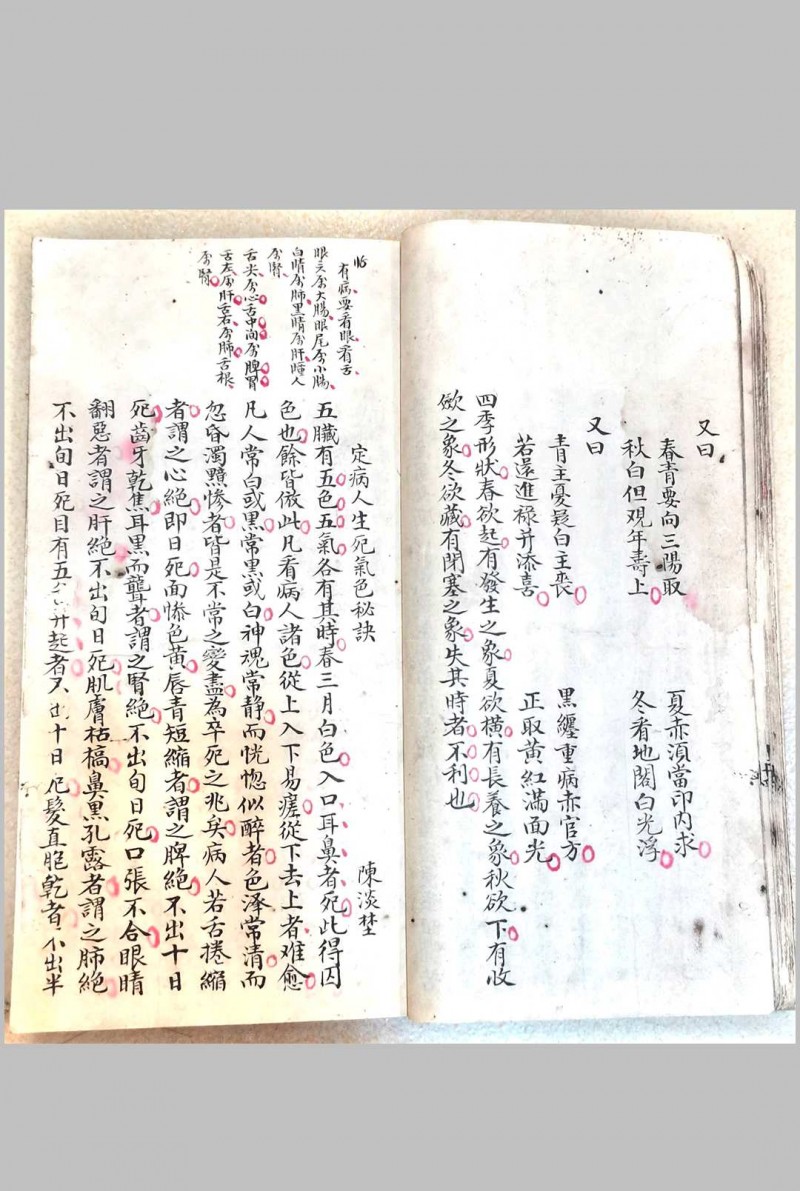 又曰
春青要向三陽取 夏赤湏當印内求
秋白但观年壽上 冬看地閣白光浮
又曰
青主憂疑白主喪 黑纏重病赤官方
若還進祿并添喜 正取黄紅滿面光
四季形狀春欲起有發生之象夏欲横有長養之象秋欲下有收
斂之象冬欲藏有閉塞之象失其時者不利也
有病要看眼看舌
眼立属大腸眼尾属小腸
白睛属肺黑睛属肝瞳人
属腎
舌尖属心舌中間属脾胃
舌左属肝舌右属肺舌根
属腎
定病人生死氣色秘訣 陳淡埜
五臟有五色五氣各有其時春三月白色入口耳鼻者死此得囚
色也餘皆倣此凡看病人諸色從上入下易瘥從下去上者难愈
凡人常白或黑常黑或白神魂常静而恍惚似醉者色澤常清而
忽昏濁黲惨者皆是不常之變盡為卒死之兆矣病人若舌捲縮
者謂之心絶即日死面惨色黄唇青短縮者謂之脾絶不出十日
死齒牙乾焦耳黑而聾者謂之腎絶不出旬日死口張不合眼睛
翻惡者謂之肝絶不出旬日死肌膚枯槁鼻黑孔露者謂之肺絶
不出旬日死目有五 起者 十日死髮直肥乾者不出半